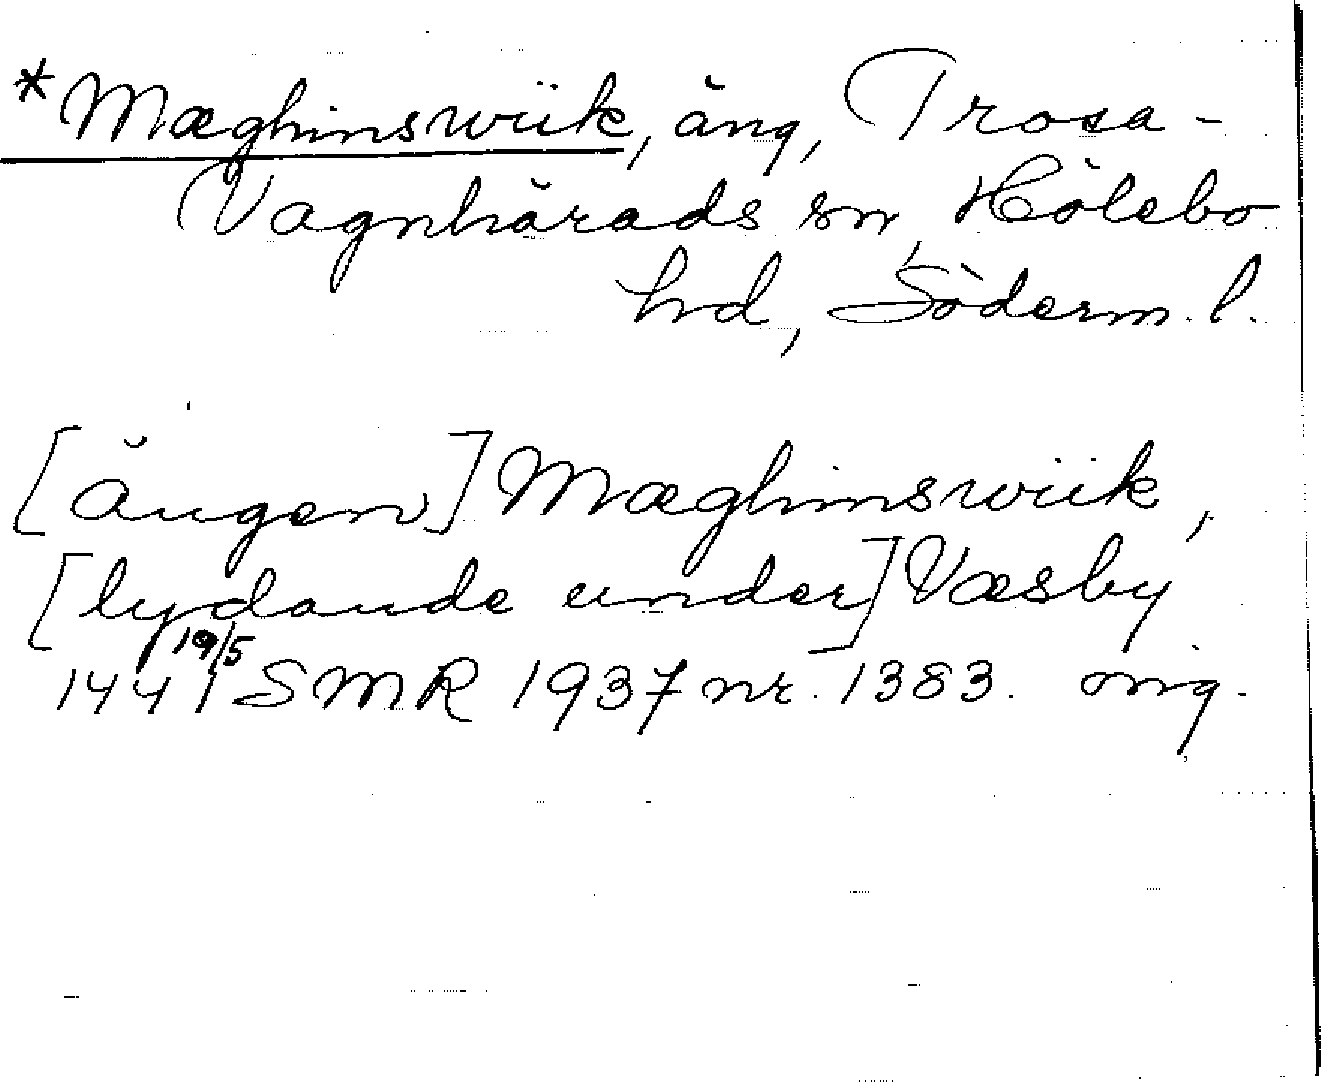 *Mæghinswiik, äng, Trosa-
Vagnhärads sn, Hölebo
hd, Söderm. l.
[ängen] Mæghinswiik,
[lydande under] Væsby
1441 19/5 SMR 1937 nr. 1383. orig.